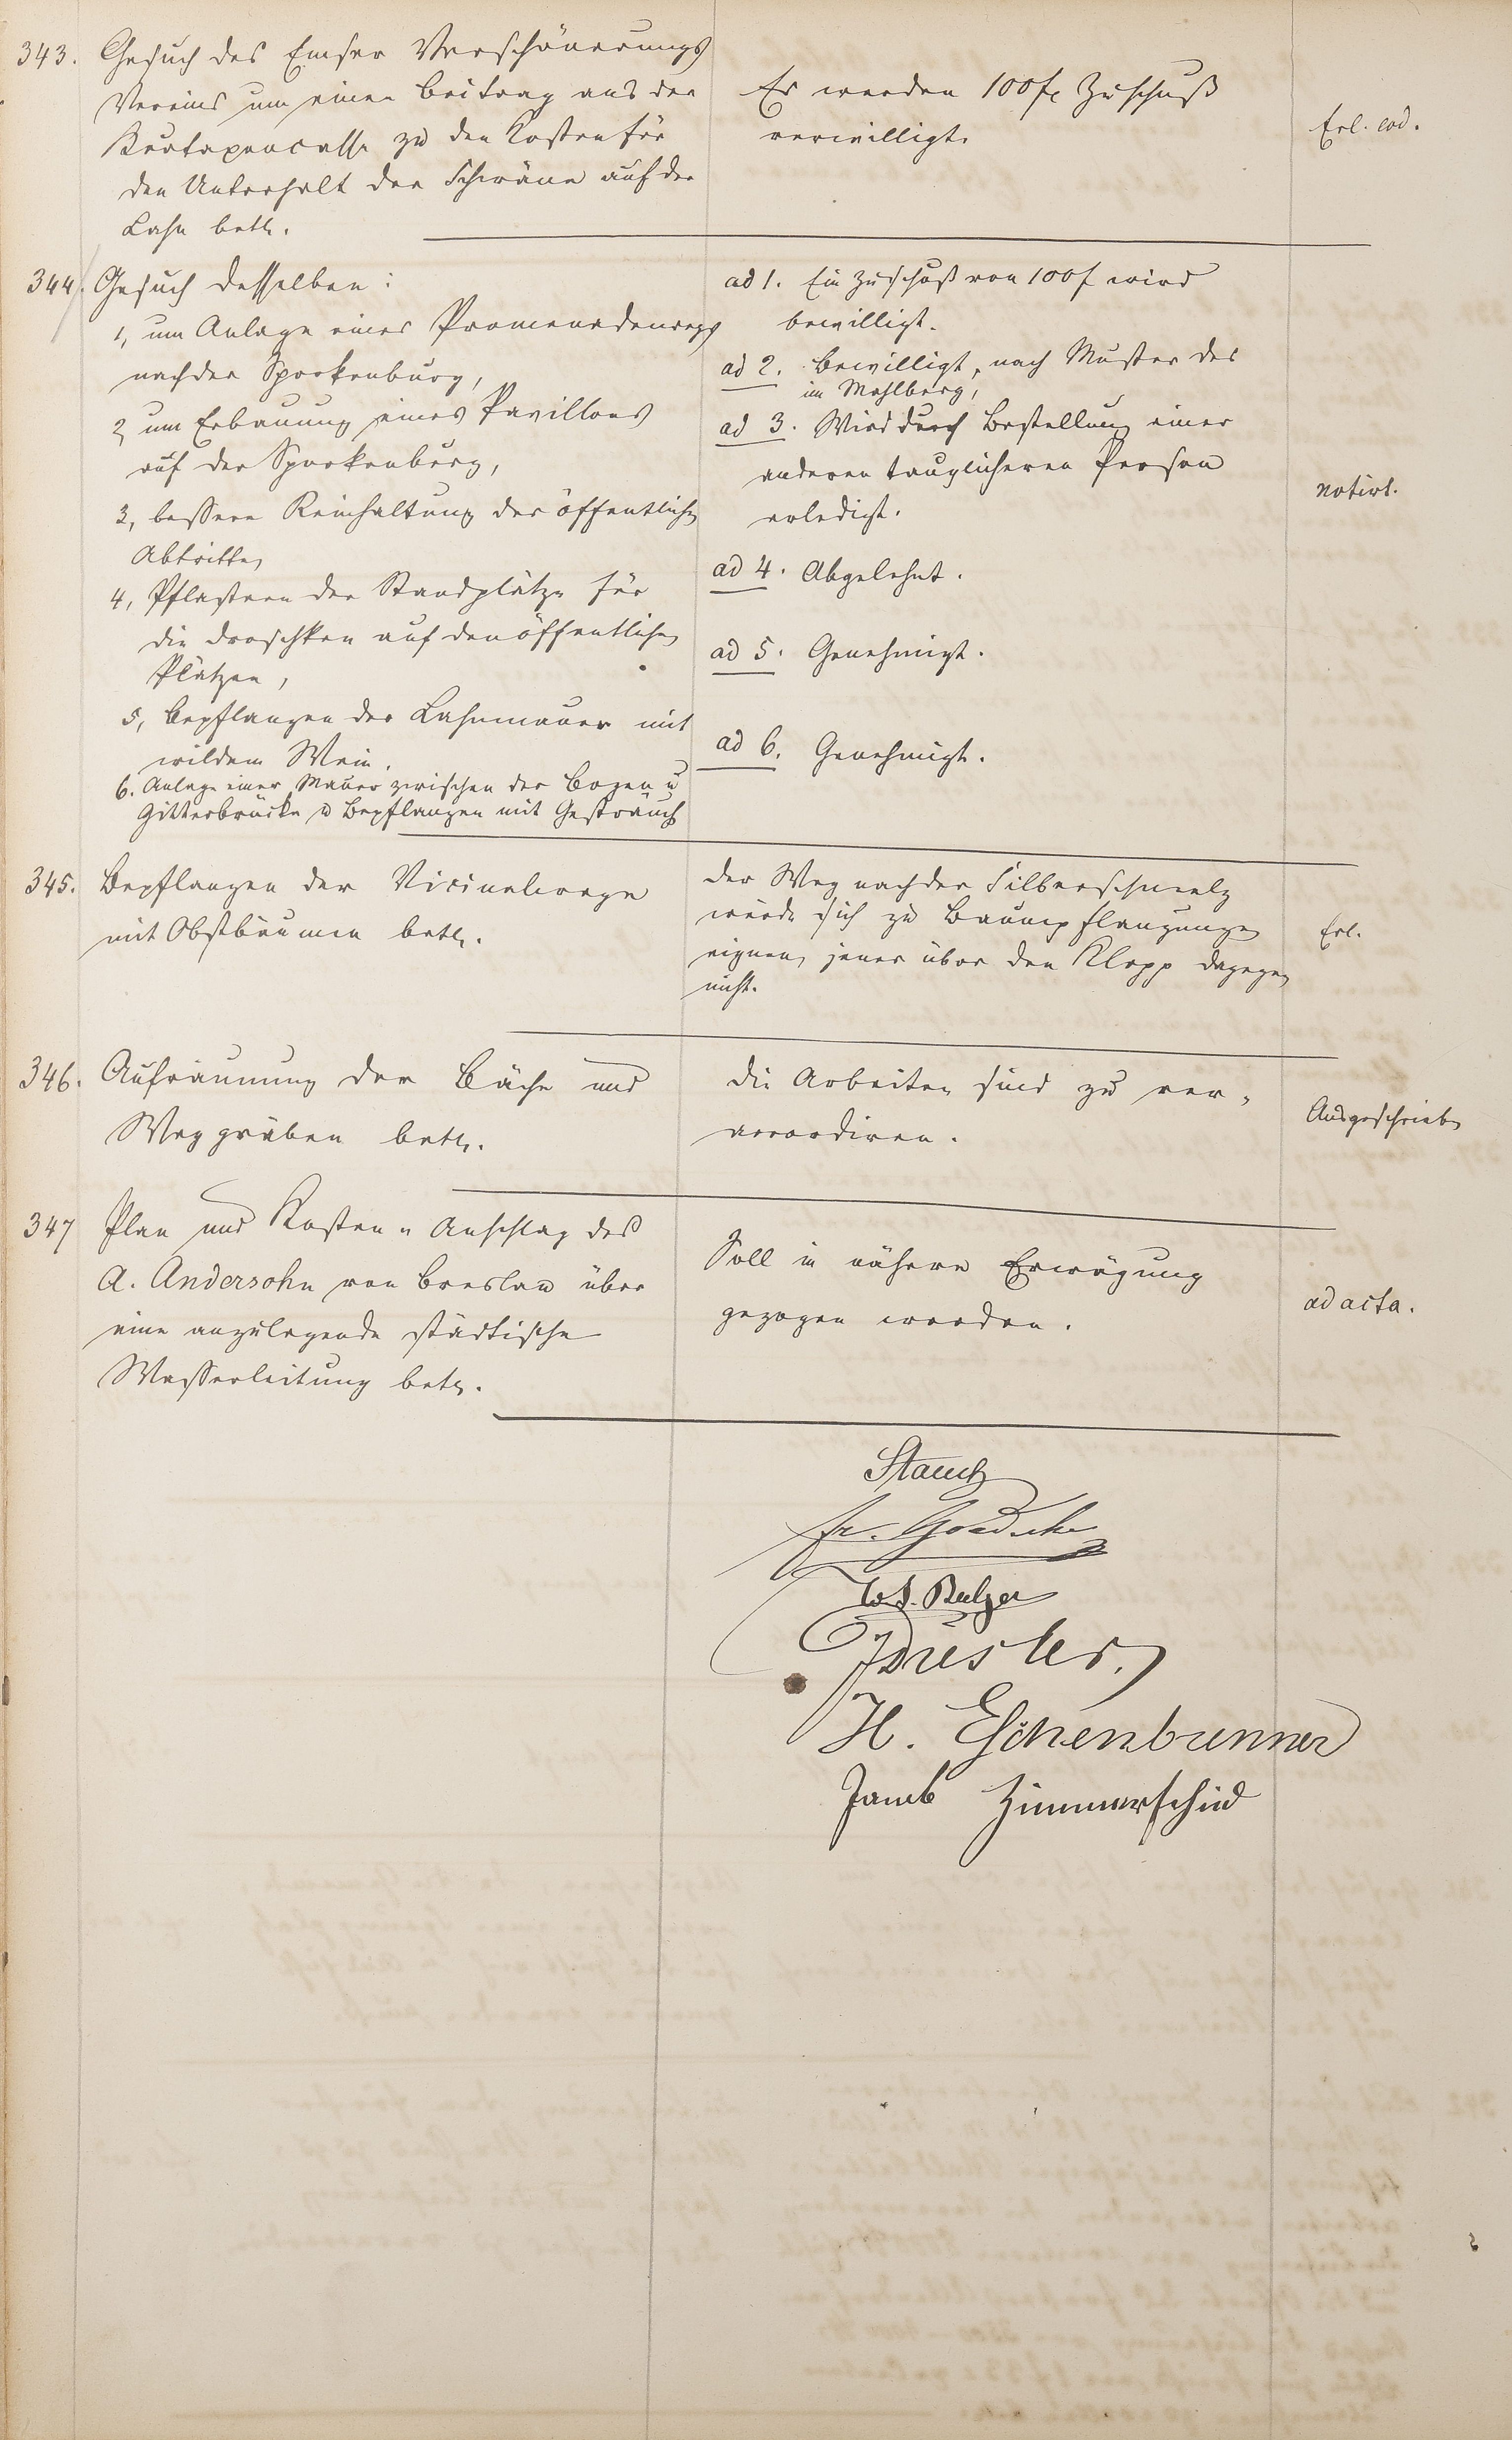 343. Gesuch des Emser Verschönerungs
Vereins um einen Beitrag aus der
Kurtaxencasse zu den Kosten für
den Unterhalt der Schwäne auf der
Lahn betr.
Es werden 100 fl Zuschuß
verwilligt.
Erl. eod.
344. Gesuch desselben:
1, um Anlage eines Promenadenwegs
nach der Sporkenburg,
2, um Erbauung eines Pavillons
auf der Sporkenburg,
3, bessere Reinhaltung der öffentlichen
Abtritte,
4, Pflastern der Standplätze für
die Droschken auf den öffentlichen
Plätzen,
5, Bepflanzen der Lahnmauer mit
wildem Wein.
6. Anlage einer Mauer zwischen der Bogen u
Gitterbrücke u Bepflanzen mit Gesträuch
ad 1. Ein Zuschuß von 100 f wird
bewilligt.
ad 2. Bewilligt, nach Muster des
im Mahlberg,
ad 3. Wird durch Bestellung einer
anderen tauglicheren Person
erledigt.
ad 4. Abgelehnt.
ad 5. Genehmigt.
ad 6. Genehmigt.
notirt.
345. Bepflanzen der Vicinalwege
mit Obstbäumen betr.
Der Weg nach der Silberschmelz
würde sich zu Baumpflanzungen
eignen, jener über den Klopp dagegen
nicht.
Erl.
346. Aufräumung der Bäche und
Weggräben betr.
Die Arbeiten sind zu ver-
accordiren.
Ausgeschrieben
347 Plan und Kosten-Anschlag des
A. Andersohn von Breslau über
eine anzulegende städtische
Wasserleitung betr.
Soll in nähere Erwägung
gezogen werden.
ad acta.
Fr.
W. J. Balzer
H. Eschenbrenner
Jacob Zimmerschied